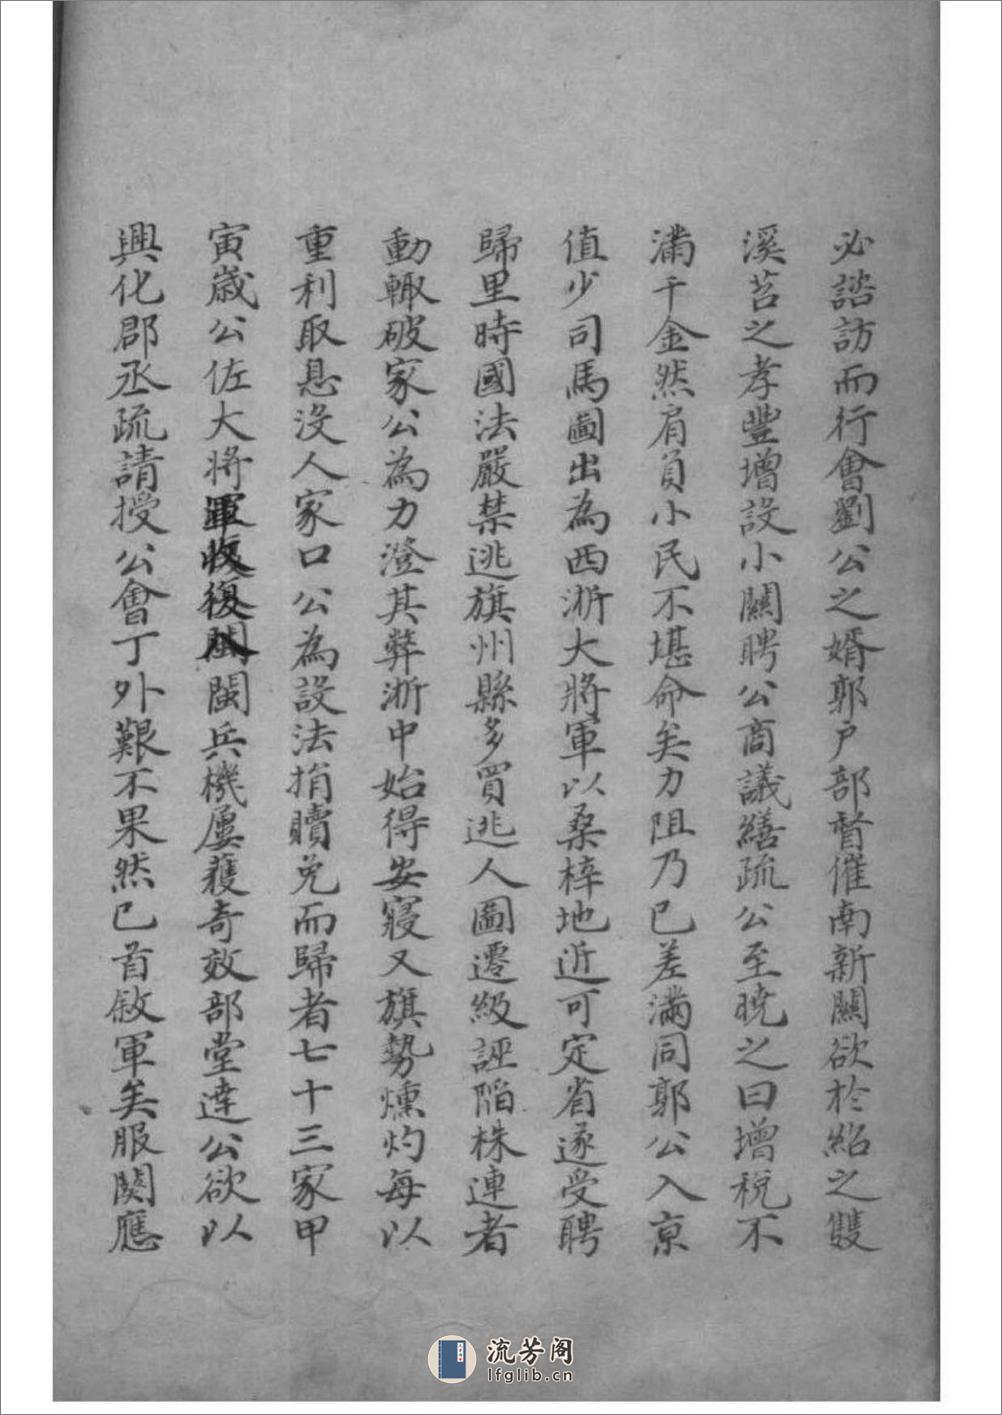 必諮訪而行會劉公之婿郭户部督催南新關欲於紹之雙
溪苕之孝豐增設小關聘公商議繕疏公至曉之曰增稅不
滿千金然肩負小民不堪命矣力阻乃已差滿同郭公入京
值少司馬圖出為西浙大將軍以桑梓地近可定省遂受聘
歸里時國法嚴禁逃旗州縣多買逃人圖遷級誣陷株連者
動輙破家公為力澄其弊浙中始得安寢又旗勢燻灼每以
重利取息没人家口公為設法捐贖免而歸者七十三家甲
寅歲公佐大將軍收復閩閩兵機屢獲奇效部堂達公欲以
興化郡丞疏請授公會丁外艱不果然已首敘軍矣服闋應
流芳阁
lfglib.cn